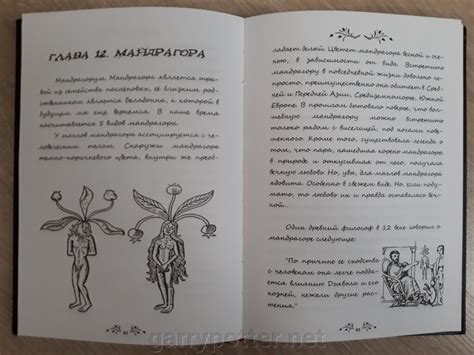 ГЛАВА 12. МАНДРАГОРА
Мандрагорум. Мандрагора является тра-
вой из семейства пасленовых, ее близким род-
ственником является Белладонна, к которой в
будущем мы еще вернемся. В наше время
насчитывается 5 видов мандрагоры.
У магов мандрагора ассоциируется с че-
ловеческим телом. Снаружи мандрагора
темно-коричневого цвета, внутри же преоб-
ладает белой. Цветет мандрагора весной и осе-
нью, в зависимости от вида. Встретить
мандрагору в повседневной жизни довольно не-
просто, преимущественно она обитает в Сред-
ней и Передней Азии, Средиземноморье, Южной
Европе. В прошлом бытовало поверье, что вол-
шебную мандрагору можно встретить
только рядом с виселицей, под ногами пове-
шенного. Кроме того, существовала легенда о
том, что пара, нашедшая корень мандрагоры
в природе и откусившая от него, получала
вечную любовь. Но, увы, для магов мандрагора
ядовита. Особенно в свежем виде. Но, если поду-
мать, то любовь их и правда оставалась
вечной..
Один древний философ в 12 веке говорил о
мандрагоре следующее:
"По причине ее сходства
с человеком она легче подда-
ется влиянию Дьявола и его
козней, нежели другие рас-
тения."
82
83
garrypotter.net